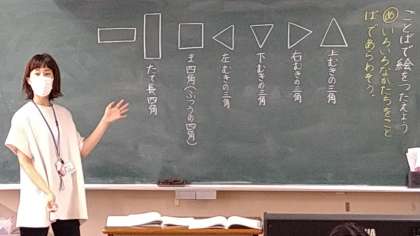 ことばで絵をつたえよう
めいろいろなかたちをこと
ばであらわそう。
上むきの三角
右むきの三角
下むきの三角
左むきの三角
ま四角(ふつうの四角)
たて長四角